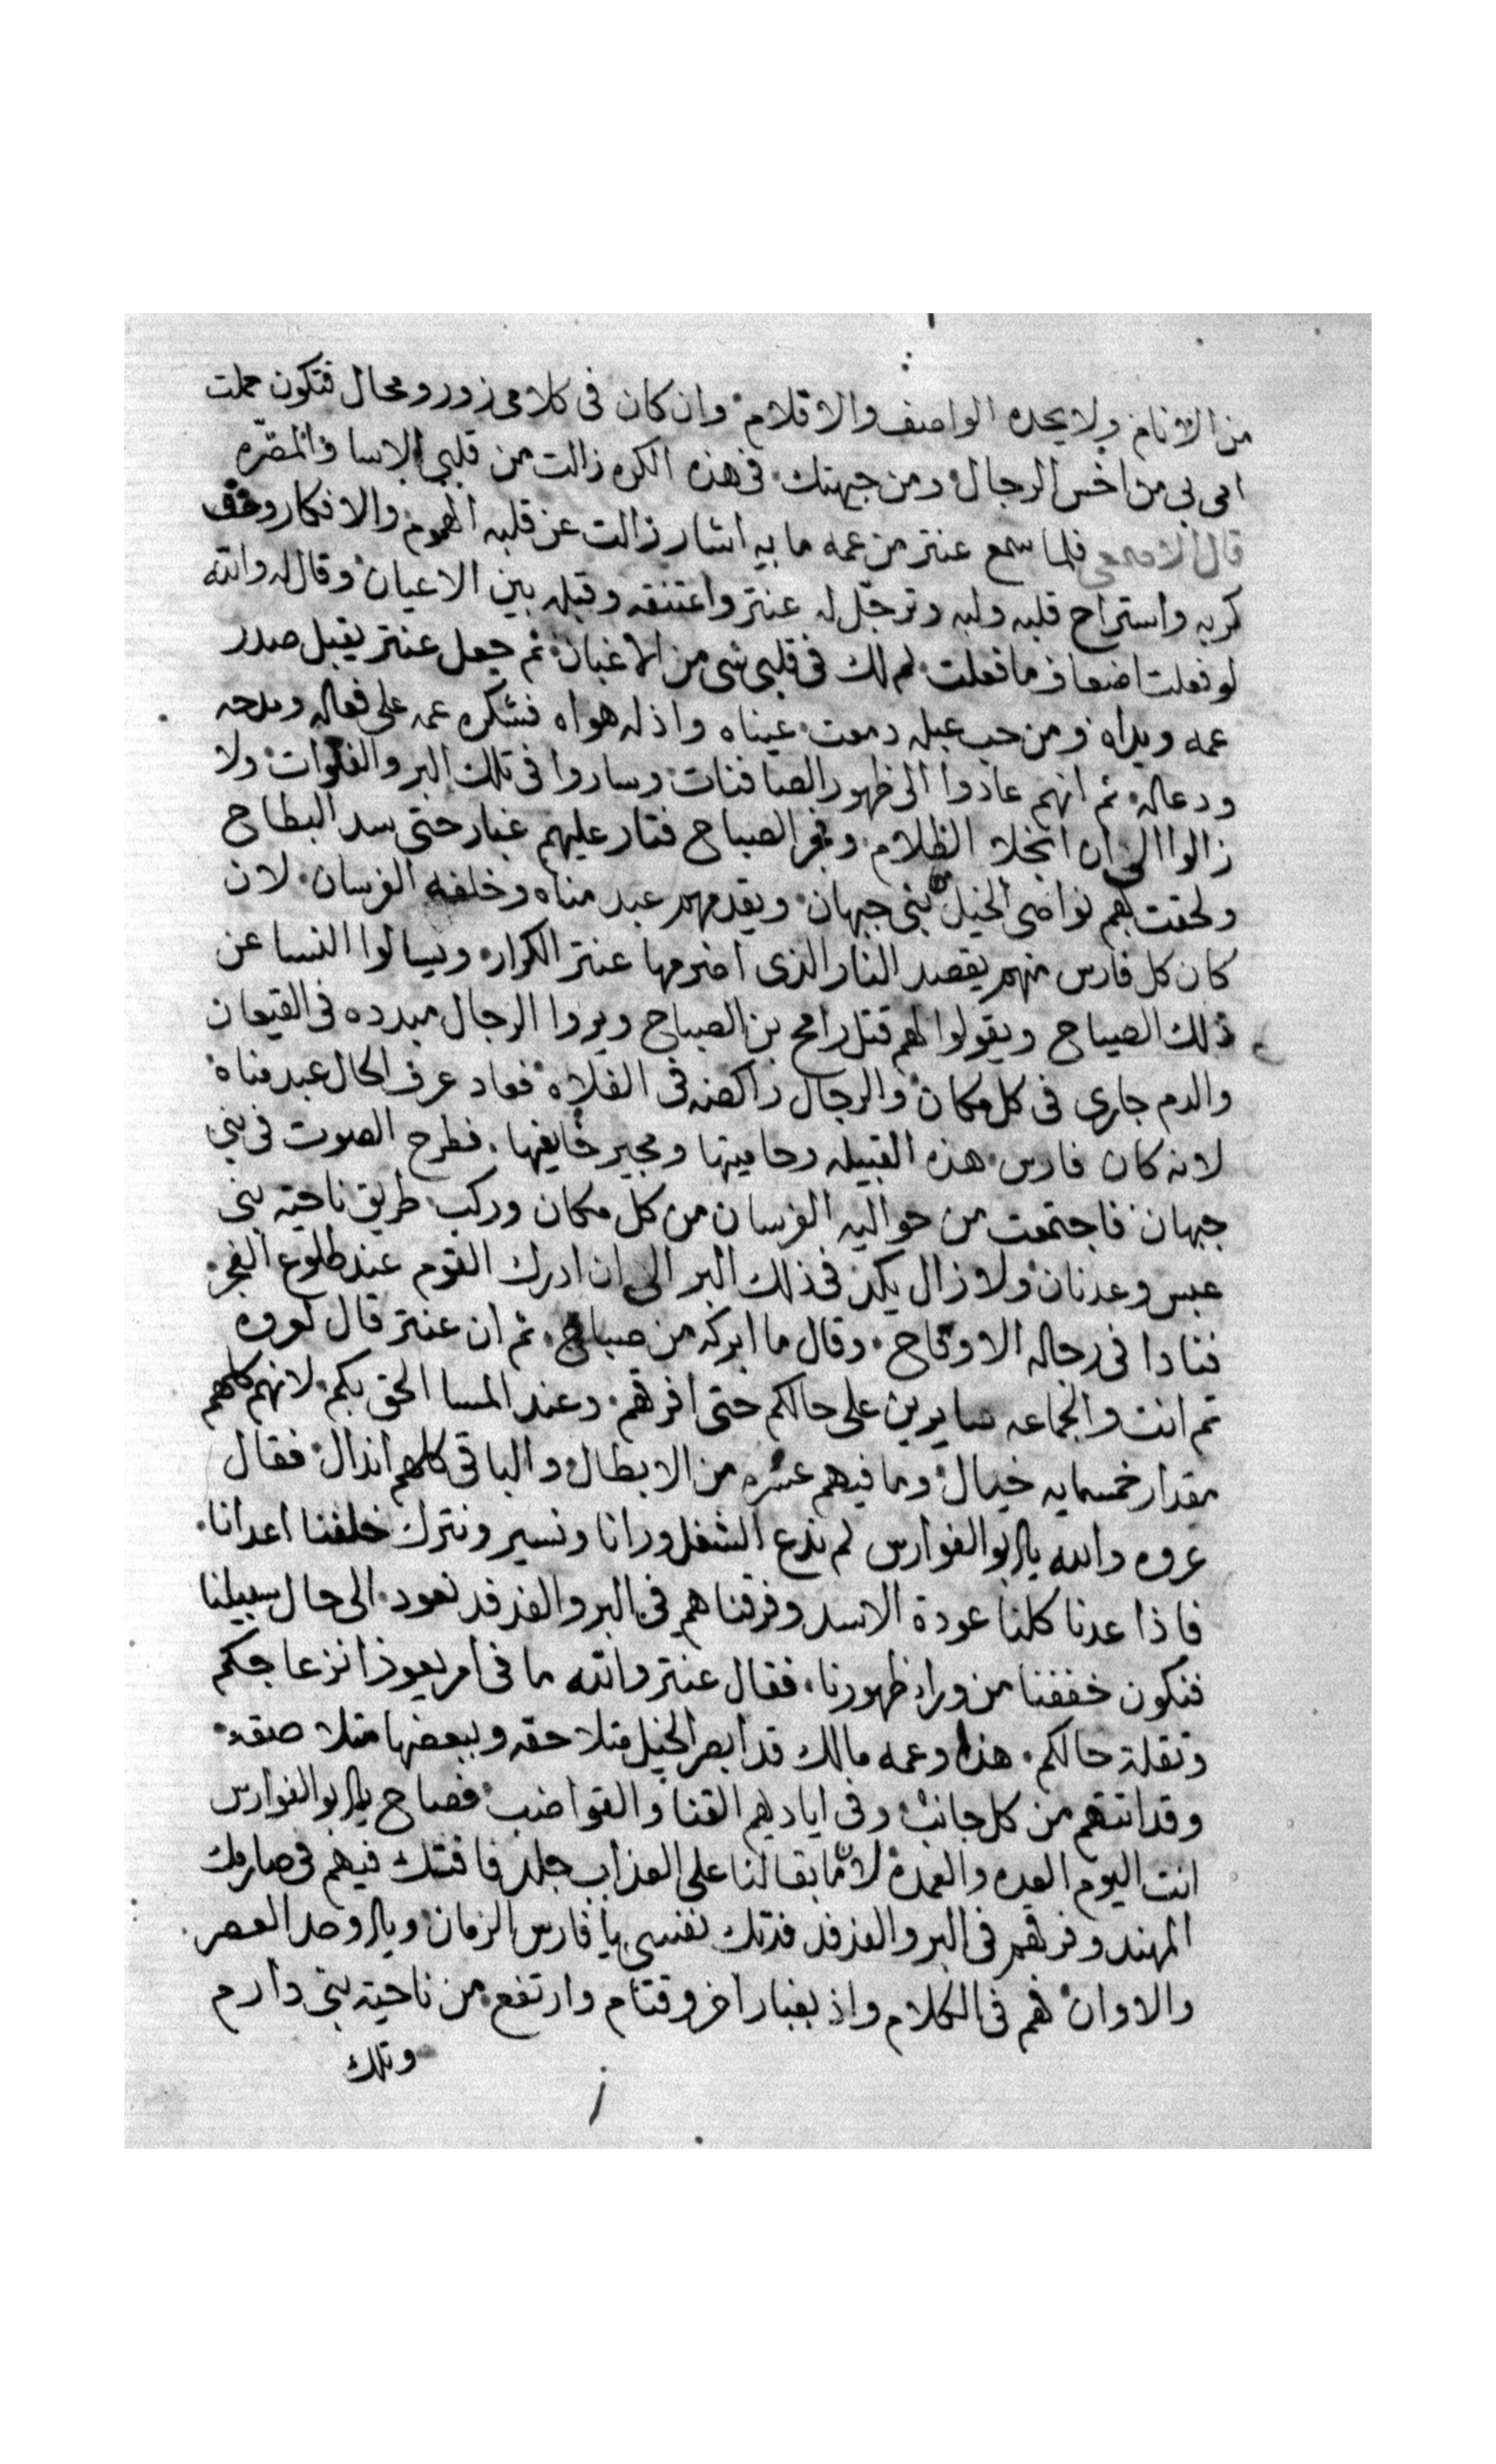 من الانام ولا يحده الواصف والاقلام وان كان فى كلامى زور ومحال فتكون حملت
امى بى من اخس الرجال ومن جهتك فى هذه الكره زالت من قلبى الاسا والمضره
قال الاصمعى فلما سمع عنتر من عمه ما بيه اشار زالت عن قلبه الهموم والافكار وخف
كربه واستراح قلبه ولبه وترجل له عنتر واعتنقه وقبله بين الاعيان وقال له والله
لو فعلت اضعاف ما فعلت لم لك فى قلبى شى من الاغبان ثم جعل عنتر يقبل صدر
عمه ويداه ومن حب عبله دمعت عيناه واذله هواه فشكره عمه على فعاله ومدحه
ودعاله ثم انهم عادوا الى ظهور الصافنات وساروا فى تلك البر والفلوات ولا
زالوا الى ان انجلا الظلام وفجر الصباح فثار عليهم غبار حتى سد البطاح
ولحقت بهم نواصى الخيل من بنى جبهان ويقدمهم عبد مناه وخلفه الفرسان لان
كان كل فارس منهم يقصد النار الذى اضرمها عنتر الكرار ويسالوا النسا عن
ذلك الصياح ويقولوا لهم قتل رامح بن الصباح ويروا الرجال مبدده فى القيعان
والدم جارى فى كل مكان والرجال راكضه فى الفلاه فعاد عرف الحال عبد مناة
لانه كان فارس هذه القبيله وحاميتها ومجير خايفها فطرح الصوت فى بنى
جبهان فاجتمعت من حواليه الفرسان من كل مكان وركب طريق ناحية بنى
عبس وعدنان ولا زال يكد فى ذلك البر الى ان ادرك القوم عند طلوع الفجر
فنادا فى رجاله الاوقاح وقال ما ابركه من صباح ثم ان عنتر قال لعروه
تم انت والجماعه سايرين على حالكم حتى افرقهم وعند المسا الحق بكم لانهم كلهم
مقدار خمسمايه خيال وما فيهم عشره من الابطال والباقى كلهم انذال فقال
عروه والله يا ابو الفوارس لم ندع الشغل ورانا ونسير ونترك خلفنا اعدانا
فاذا عدنا كلنا عودة الاسد وفرقناهم فى البر والفدفد نعود الى حال سبيلنا
فنكون خففنا من ورا ظهورنا فقال عنتر والله ما فى امر يعوذ انزعاجكم
وثقلة حالكم هذا وعمه مالك قد ابصر الخيل متلاحقه وببعضها متلاصقه
وقد اتتهم من كل جانب وفى اياديهم القنا والقواضب فصاح يا ابو الفوارس
انت اليوم العده والعمدة لان ما بقا لنا على العذاب جلد فافتك فيهم فى صارمك
المهند وفرقهم فى البر والفدفد فدتك نفسى يا فارس الزمان ويا اوحد العصر
والاوان فهم فى الكلام واذ بغبار اخر وقتام وارتفع من ناحية بنى دارم
وتلك